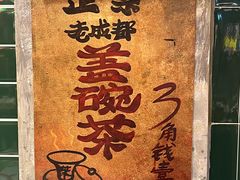 正宗
老成都
盖碗茶
3角钱壹